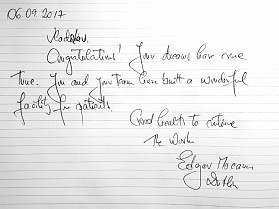 06.09.2017
Vladislav.
Congratulations! Your dreams have come
True. You and your team have built a wonderful
facility for patients.
Good health to continue
The Work
Edgar